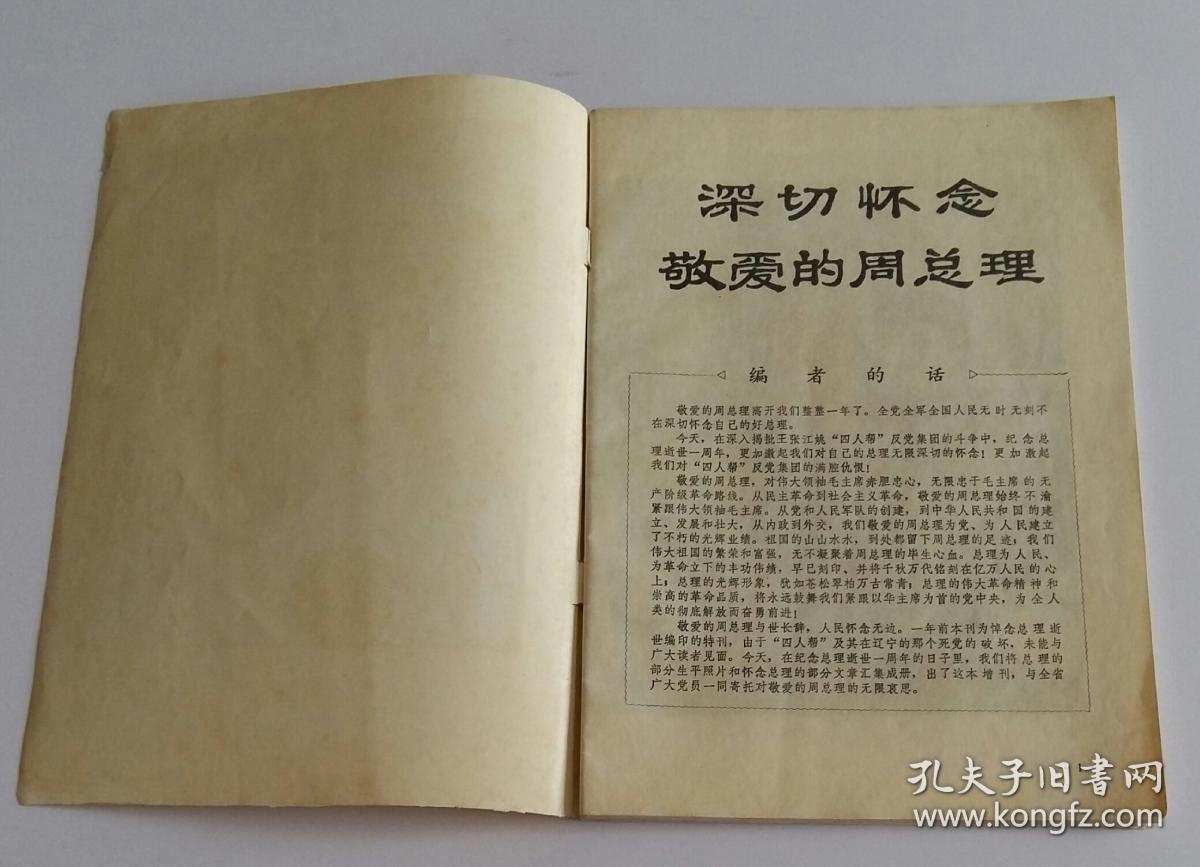 深切怀念
敬爱的周总理
编者的话
敬爱的周总理离开我们整整一年了。全党全军全国人民无时无刻不
在深切怀念自己的好总理。
今天，在深入揭批王张江姚“四人帮”反党集团的斗争中，纪念总
理逝世一周年，更加激起我们对自己的总理无限深切的怀念！更加激起
我们对“四人帮”反党集团的满腔仇恨！
敬爱的周总理，对伟大领袖毛主席赤胆忠心，无限忠于毛主席的无
产阶级革命路线。从民主革命到社会主义革命，敬爱的周总理始终不渝
紧跟伟大领袖毛主席。从党和人民军队的创建，到中华人民共和国的建
立、发展和壮大，从内政到外交，我们敬爱的周总理为党、为人民建立
了不朽的光辉业绩。祖国的山山水水，到处都留下周总理的足迹；我们
伟大祖国的繁荣和富强，无不凝聚着周总理的毕生心血。总理为人民、
为革命立下的丰功伟绩，早已刻印、并将千秋万代铭刻在亿万人民的心
上；总理的光辉形象，犹如苍松翠柏万古常青；总理的伟大革命精神和
崇高的革命品质，将永远鼓舞我们紧跟以华主席为首的党中央，为全人
类的彻底解放而奋勇前进！
敬爱的周总理与世长辞，人民怀念无边。一年前本刊为悼念总理逝
世编印的特刊，由于“四人帮”及其在辽宁的那个死党的破坏，未能与
广大读者见面。今天，在纪念总理逝世一周年的日子里，我们将总理的
部分生平照片和怀念总理的部分文章汇集成册，出了这本增刊，与全省
广大党员一同寄托对敬爱的周总理的无限哀思。
孔夫子旧书网
www.kongfz.com